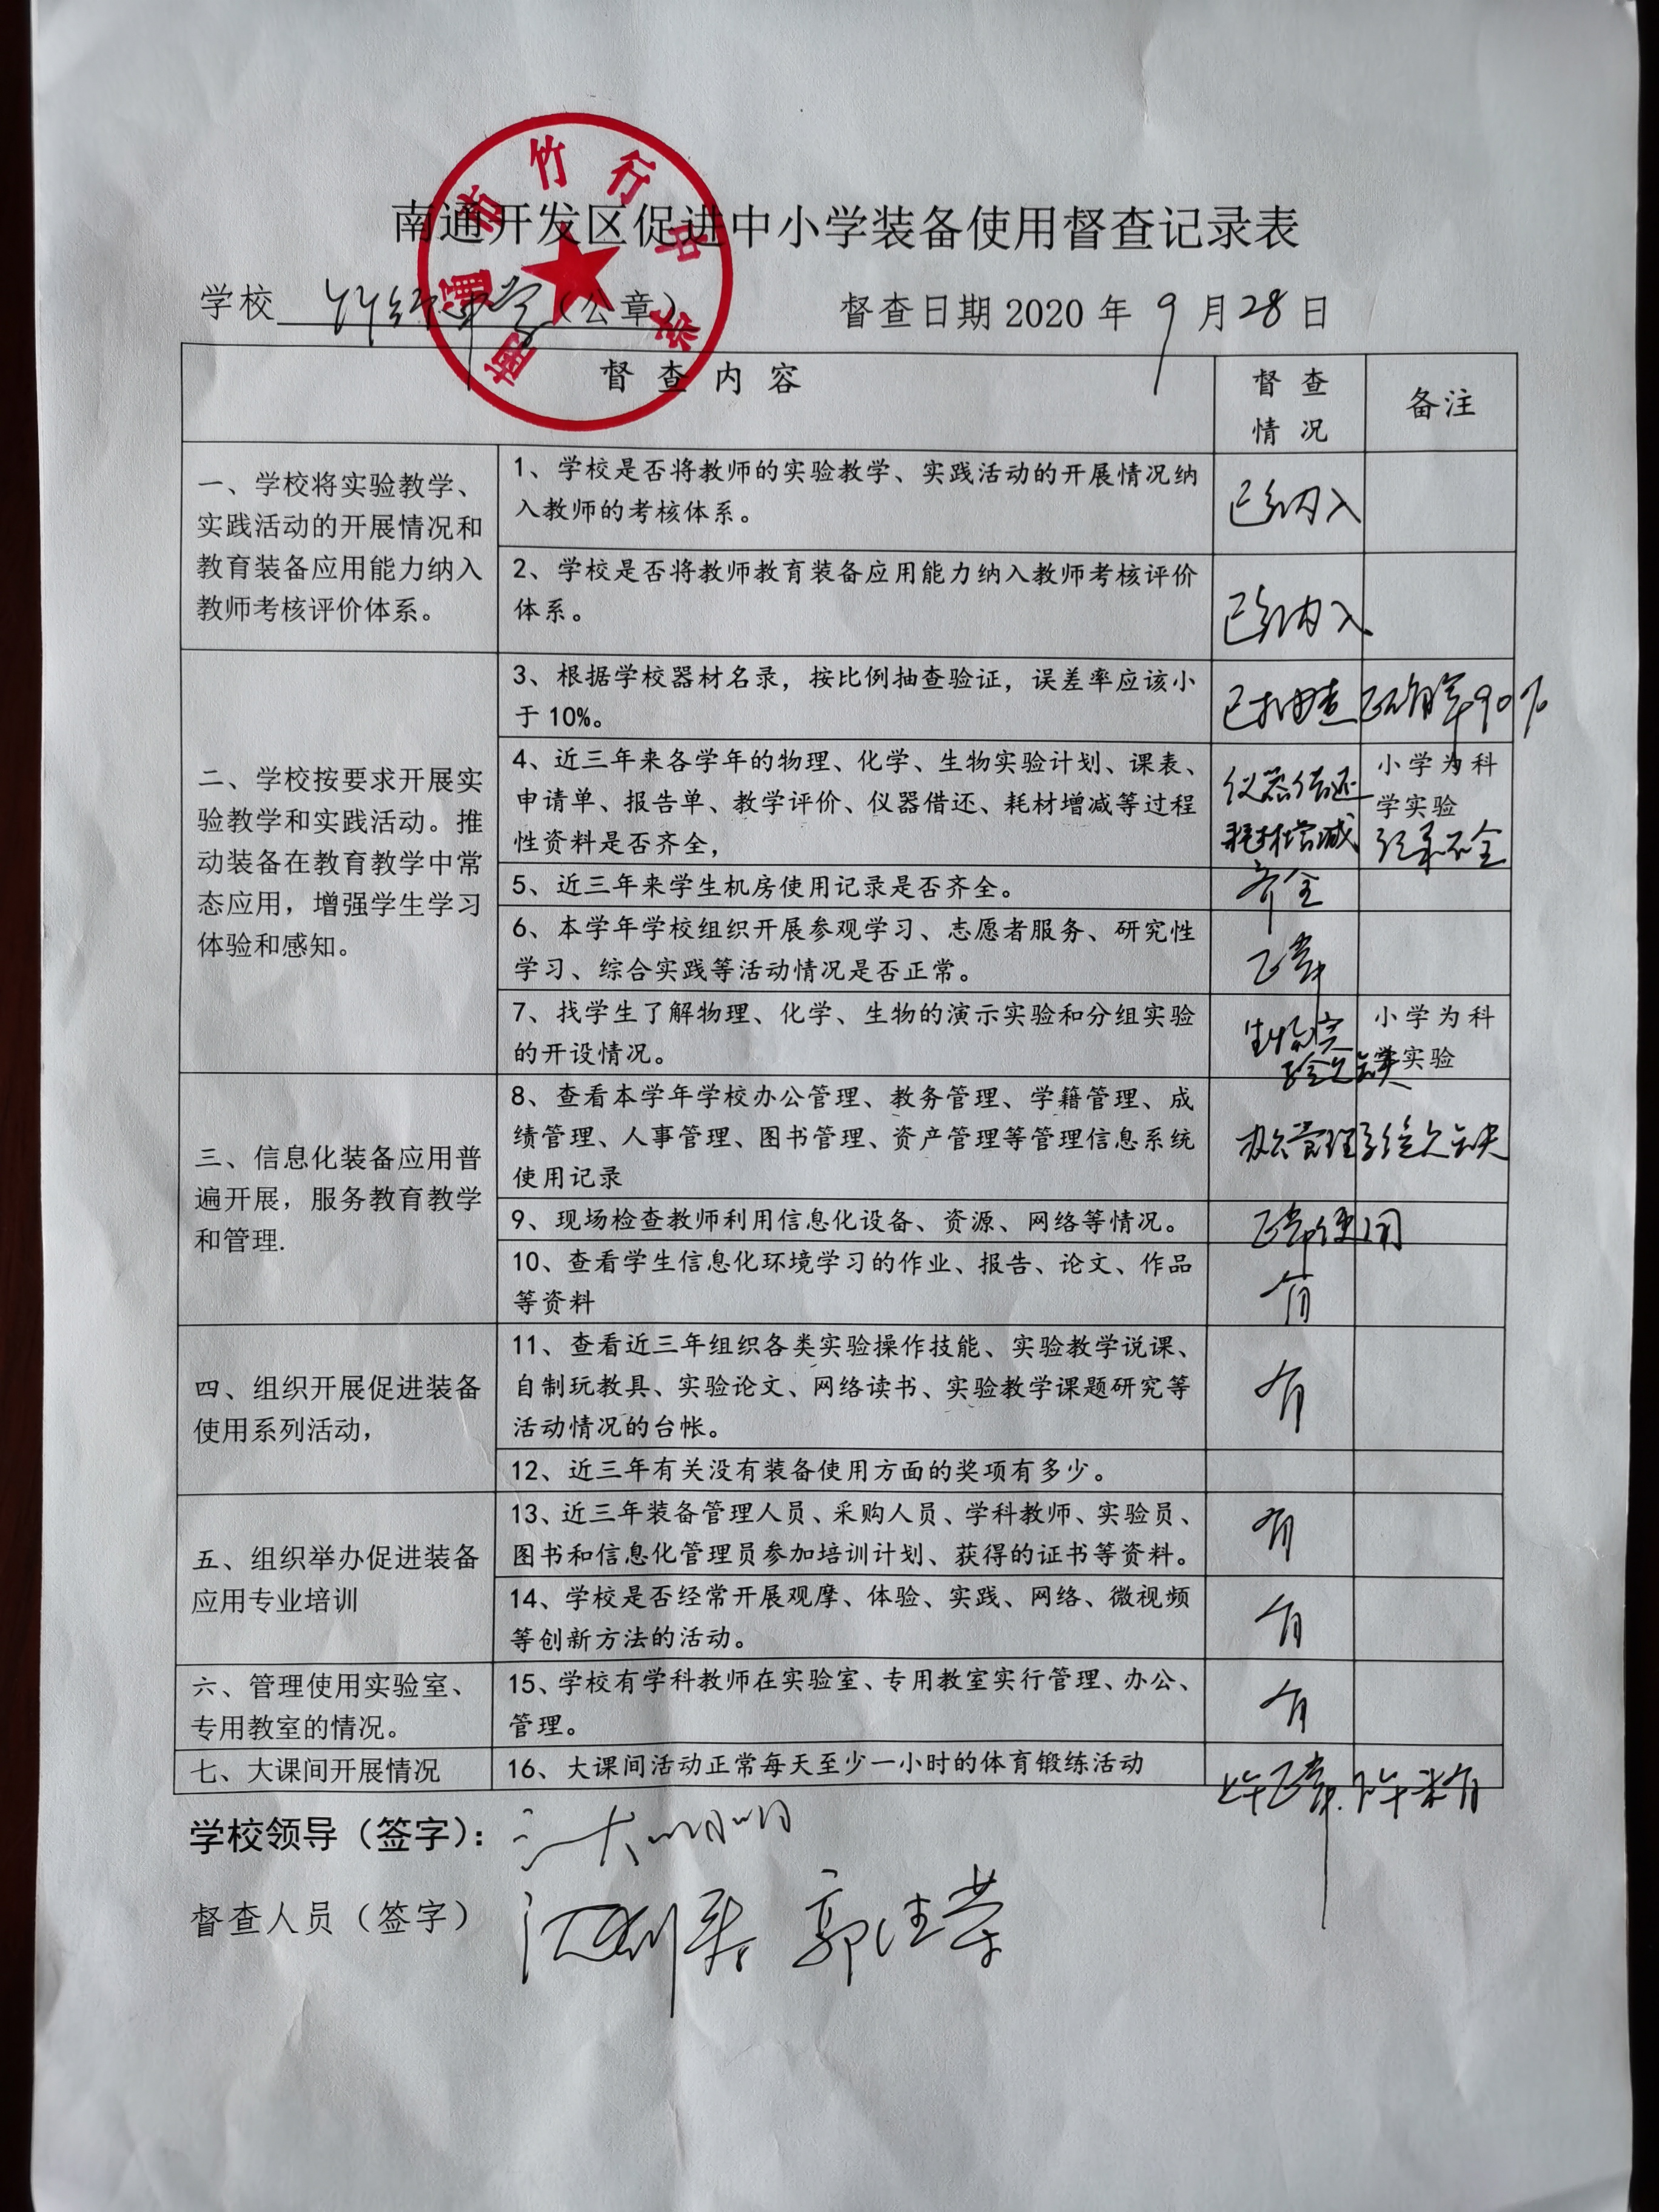 南通市竹行中学
南通开发区促进中小学装备使用督查记录表
学校 竹行中学（公章） 督查日期 2020 年 9 月 28 日
督 查 内 容
督 查
情 况
备注
一、学校将实验教学、
实践活动的开展情况和
教育装备应用能力纳入
教师考核评价体系。
1、学校是否将教师的实验教学、实践活动的开展情况纳
入教师的考核体系。
已纳入
2、学校是否将教师教育装备应用能力纳入教师考核评价
体系。
已纳入
二、学校按要求开展实
验教学和实践活动。推
动装备在教育教学中常
态应用，增强学生学习
体验和感知。
3、根据学校器材名录，按比例抽查验证，误差率应该小
于 10%。
已抽查 正确率90%
4、近三年来各学年的物理、化学、生物实验计划、课表、
申请单、报告单、教学评价、仪器借还、耗材增减等过程
性资料是否齐全，
仪器借还
耗材增减
小学为科
学实验
记录不全
5、近三年来学生机房使用记录是否齐全。
齐全
6、本学年学校组织开展参观学习、志愿者服务、研究性
学习、综合实践等活动情况是否正常。
正常
7、找学生了解物理、化学、生物的演示实验和分组实验
的开设情况。
生物实
验欠缺
小学为科
学实验
三、信息化装备应用普
遍开展，服务教育教学
和管理.
8、查看本学年学校办公管理、教务管理、学籍管理、成
绩管理、人事管理、图书管理、资产管理等管理信息系统
使用记录
办公管理系统欠缺
9、现场检查教师利用信息化设备、资源、网络等情况。
正常使用
10、查看学生信息化环境学习的作业、报告、论文、作品
等资料
有
四、组织开展促进装备
使用系列活动，
11、查看近三年组织各类实验操作技能、实验教学说课、
自制玩教具、实验论文、网络读书、实验教学课题研究等
活动情况的台帐。
有
12、近三年有关没有装备使用方面的奖项有多少。
五、组织举办促进装备
应用专业培训
13、近三年装备管理人员、采购人员、学科教师、实验员、
图书和信息化管理员参加培训计划、获得的证书等资料。
有
14、学校是否经常开展观摩、体验、实践、网络、微视频
等创新方法的活动。
有
六、管理使用实验室、
专用教室的情况。
15、学校有学科教师在实验室、专用教室实行管理、办公、
管理。
有
七、大课间开展情况
16、大课间活动正常每天至少一小时的体育锻练活动
上午正常.下午未有
学校领导（签字）：
督查人员（签字）